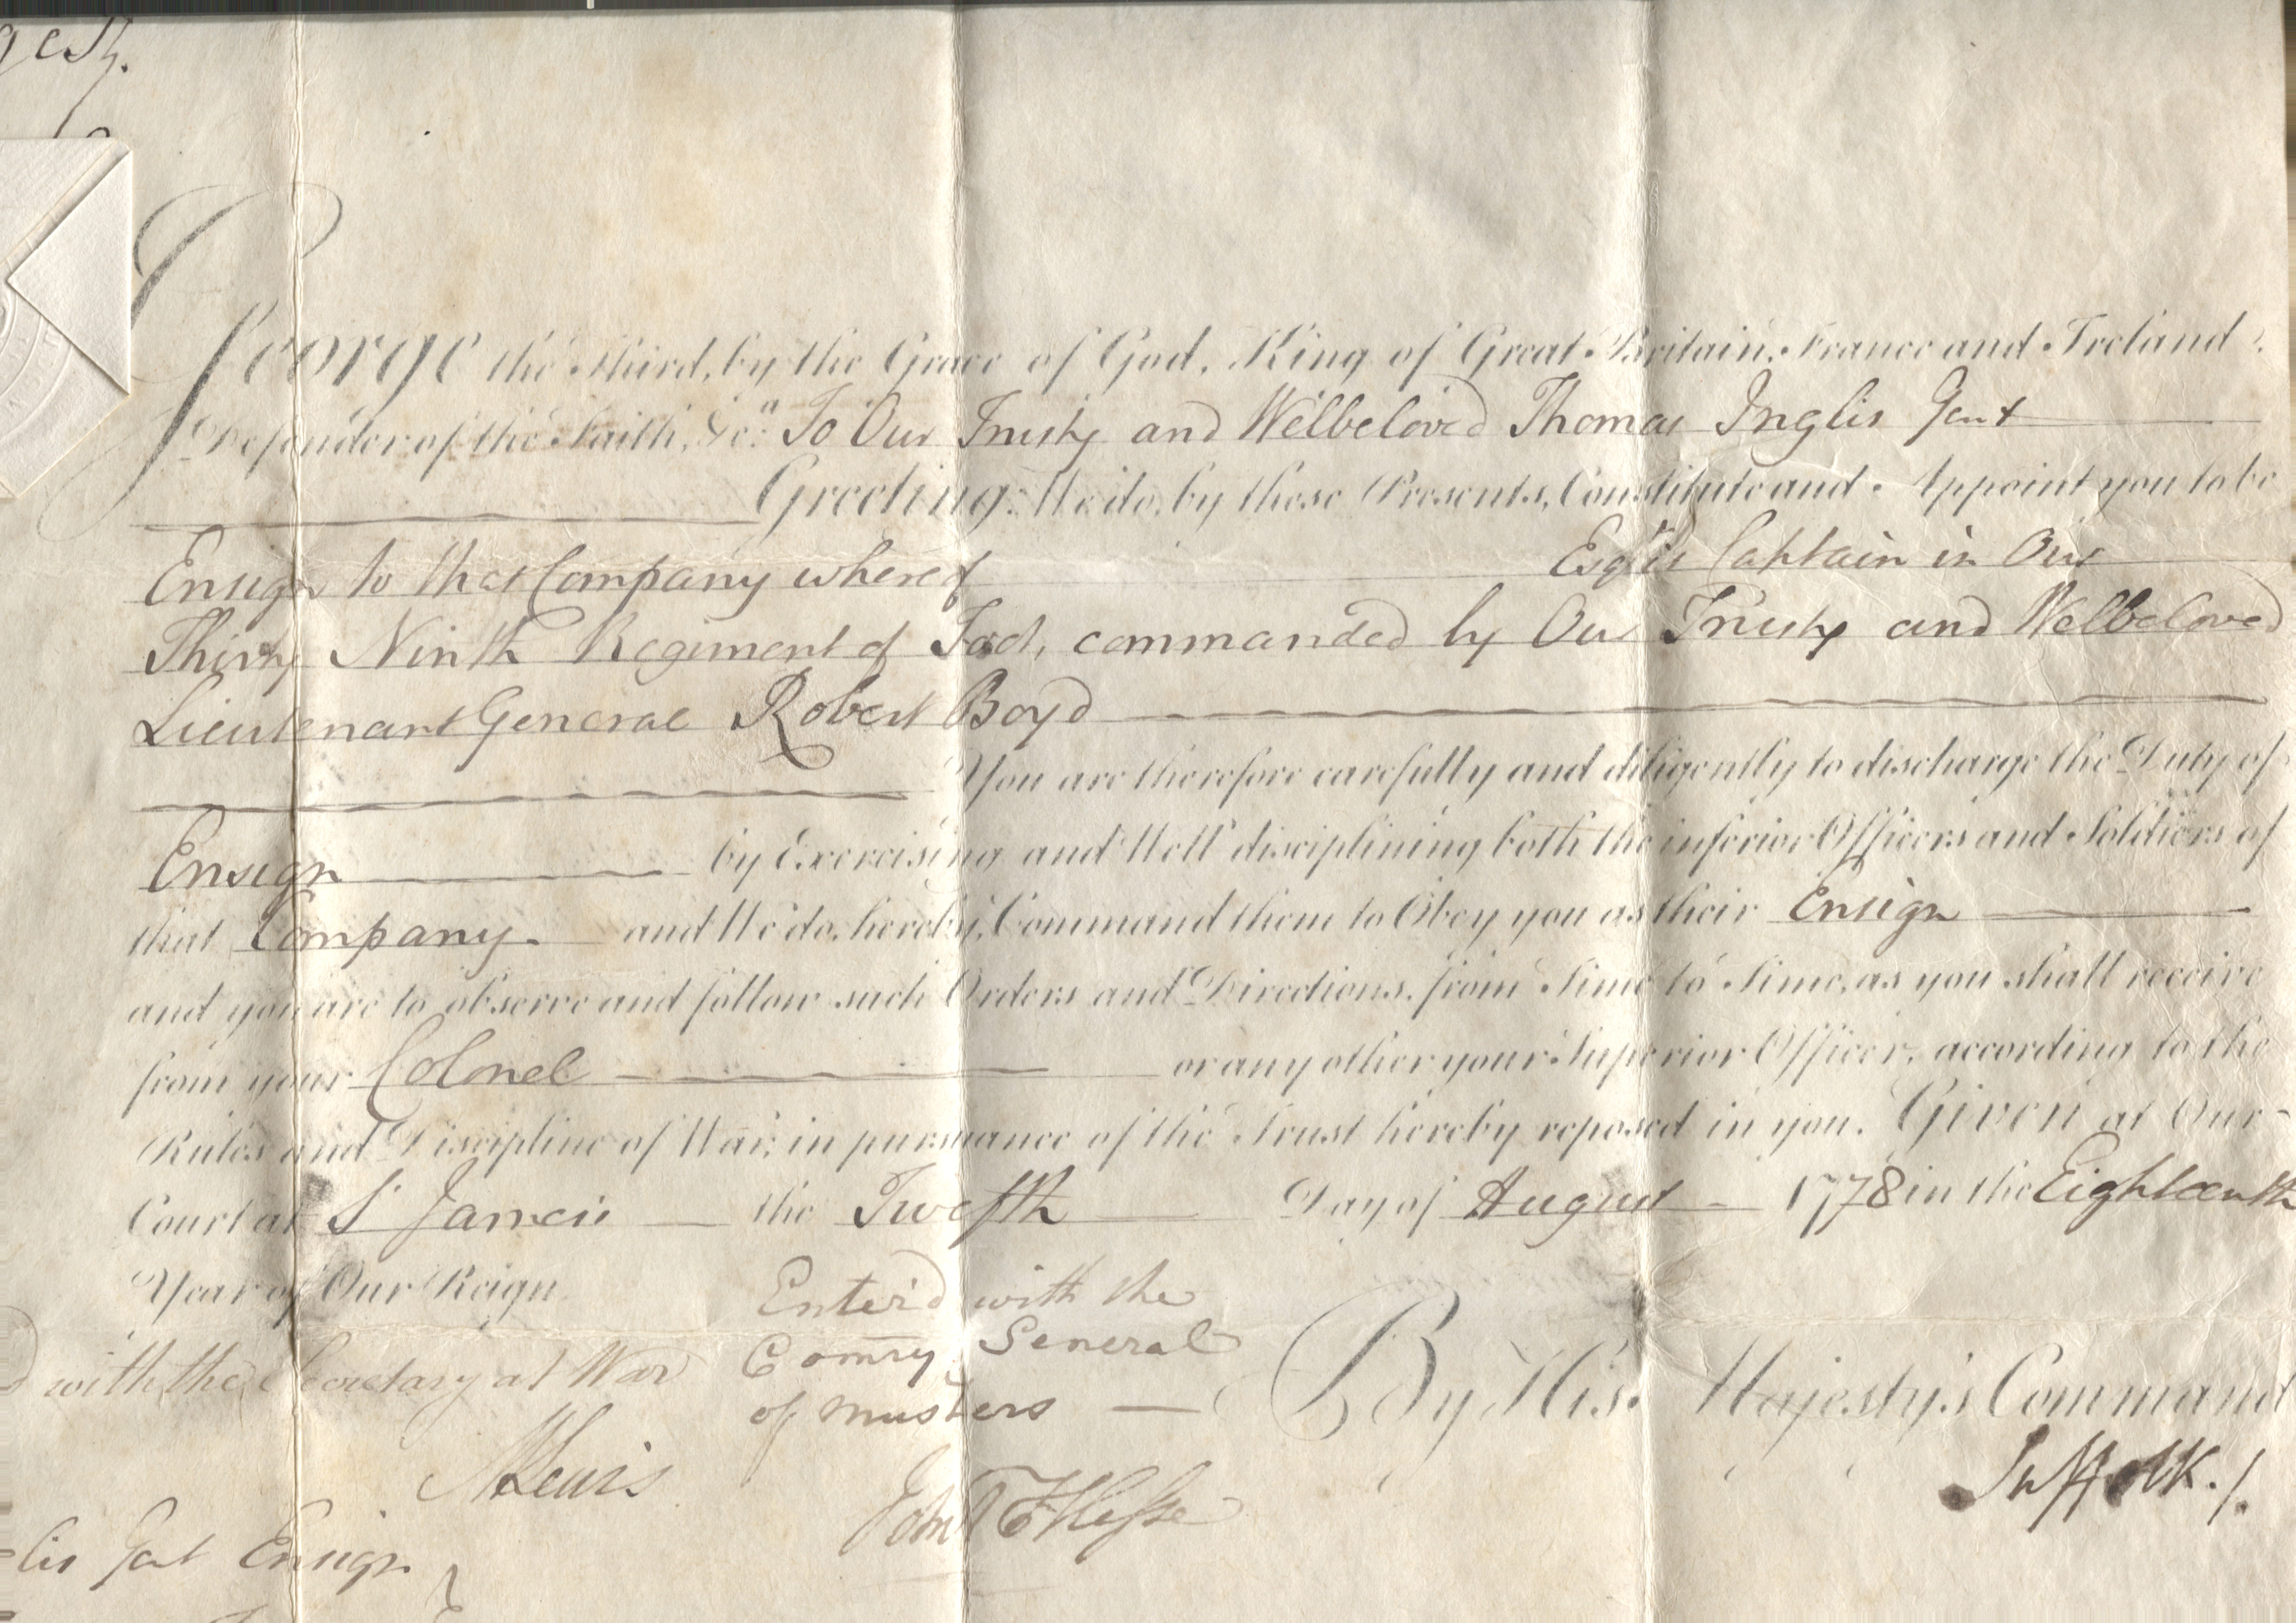 George the Third, by the Grace of God, King of Great Britain, France and Ireland,
Defender of the Faith, &c.a To Our Trusty and Welbeloved Thomas Inglis Gent
Greeting: We do, by these Presents, Constitute and Appoint you to be
Ensign to that Company whereof Esqr. is Captain in Our
Thirty Ninth Regiment of Foot, commanded by Our Trusty and Welbeloved
Lieutenant General Robert Boyd
You are therefore carefully and diligently to discharge the Duty of
Ensign by Exercising and Well disciplining both the inferior Officers and Soldiers of
that Company and We do hereby Command them to Obey you as their Ensign
and you are to observe and follow such Orders and Directions, from Time to Time, as you shall receive
from your Colonel or any other your Superior Officer, according to the
Rules and Discipline of War, in pursuance of the Trust hereby reposed in you. Given at Our
Court at St James's the Twelfth Day of August 1778 in the Eighteenth
Year of Our Reign.
Enter'd with the
Comry General
of Musters
with the Secretary at War
By His Majesty's Command
MLewis
John T Hesse
Suffolk
lis Gent Ensign